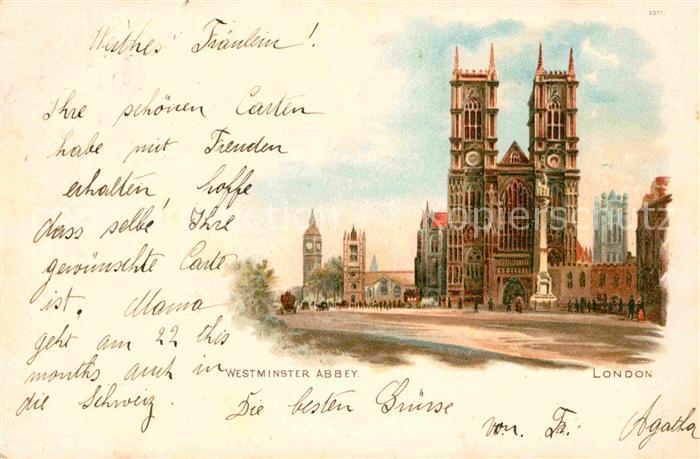 5371.
Werthes Fräulein!
Ihre schönen Carten
habe mit Freuden
erhalten hoffe
dass selbe Ihre
gewünschte Carte
ist. Mama
geht am 22 this
months auch in
die Schweiz. Die besten Grüsse
von Agatha
WESTMINSTER ABBEY.
LONDON